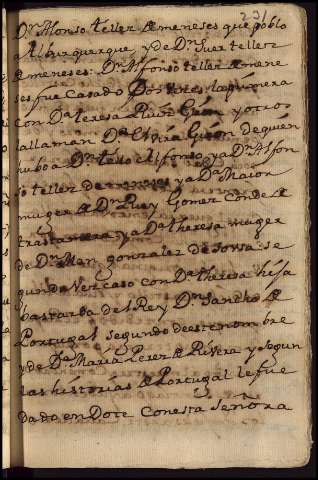 231
Dn Alonso tellez de meneses que poblo
a Alburquerque y de Dn Suer tellez
de meneses: Dn Alfonso tellez de mene
ses fue Casado Dos veces la primera
con Da teresa Ruiz Giron y otros
la llaman Da Elvira Giron de quien
hubo a Dn tello Alfonso ya Dn Alfon
so tellez de ya Da Maior
muger de Dn Ruy Gomez Conde de
trastamara ya Da theresa muger
de Dn Man gonzalez de sousa: se
gunda vez caso con Da theresa hija
bastarda del Rey Dn Sancho de
Portugal segundo deeste nombre
y de Da Maria Perez de Rivera y segun
las historias de Portugal le fue
dado en Dote con esta Señora